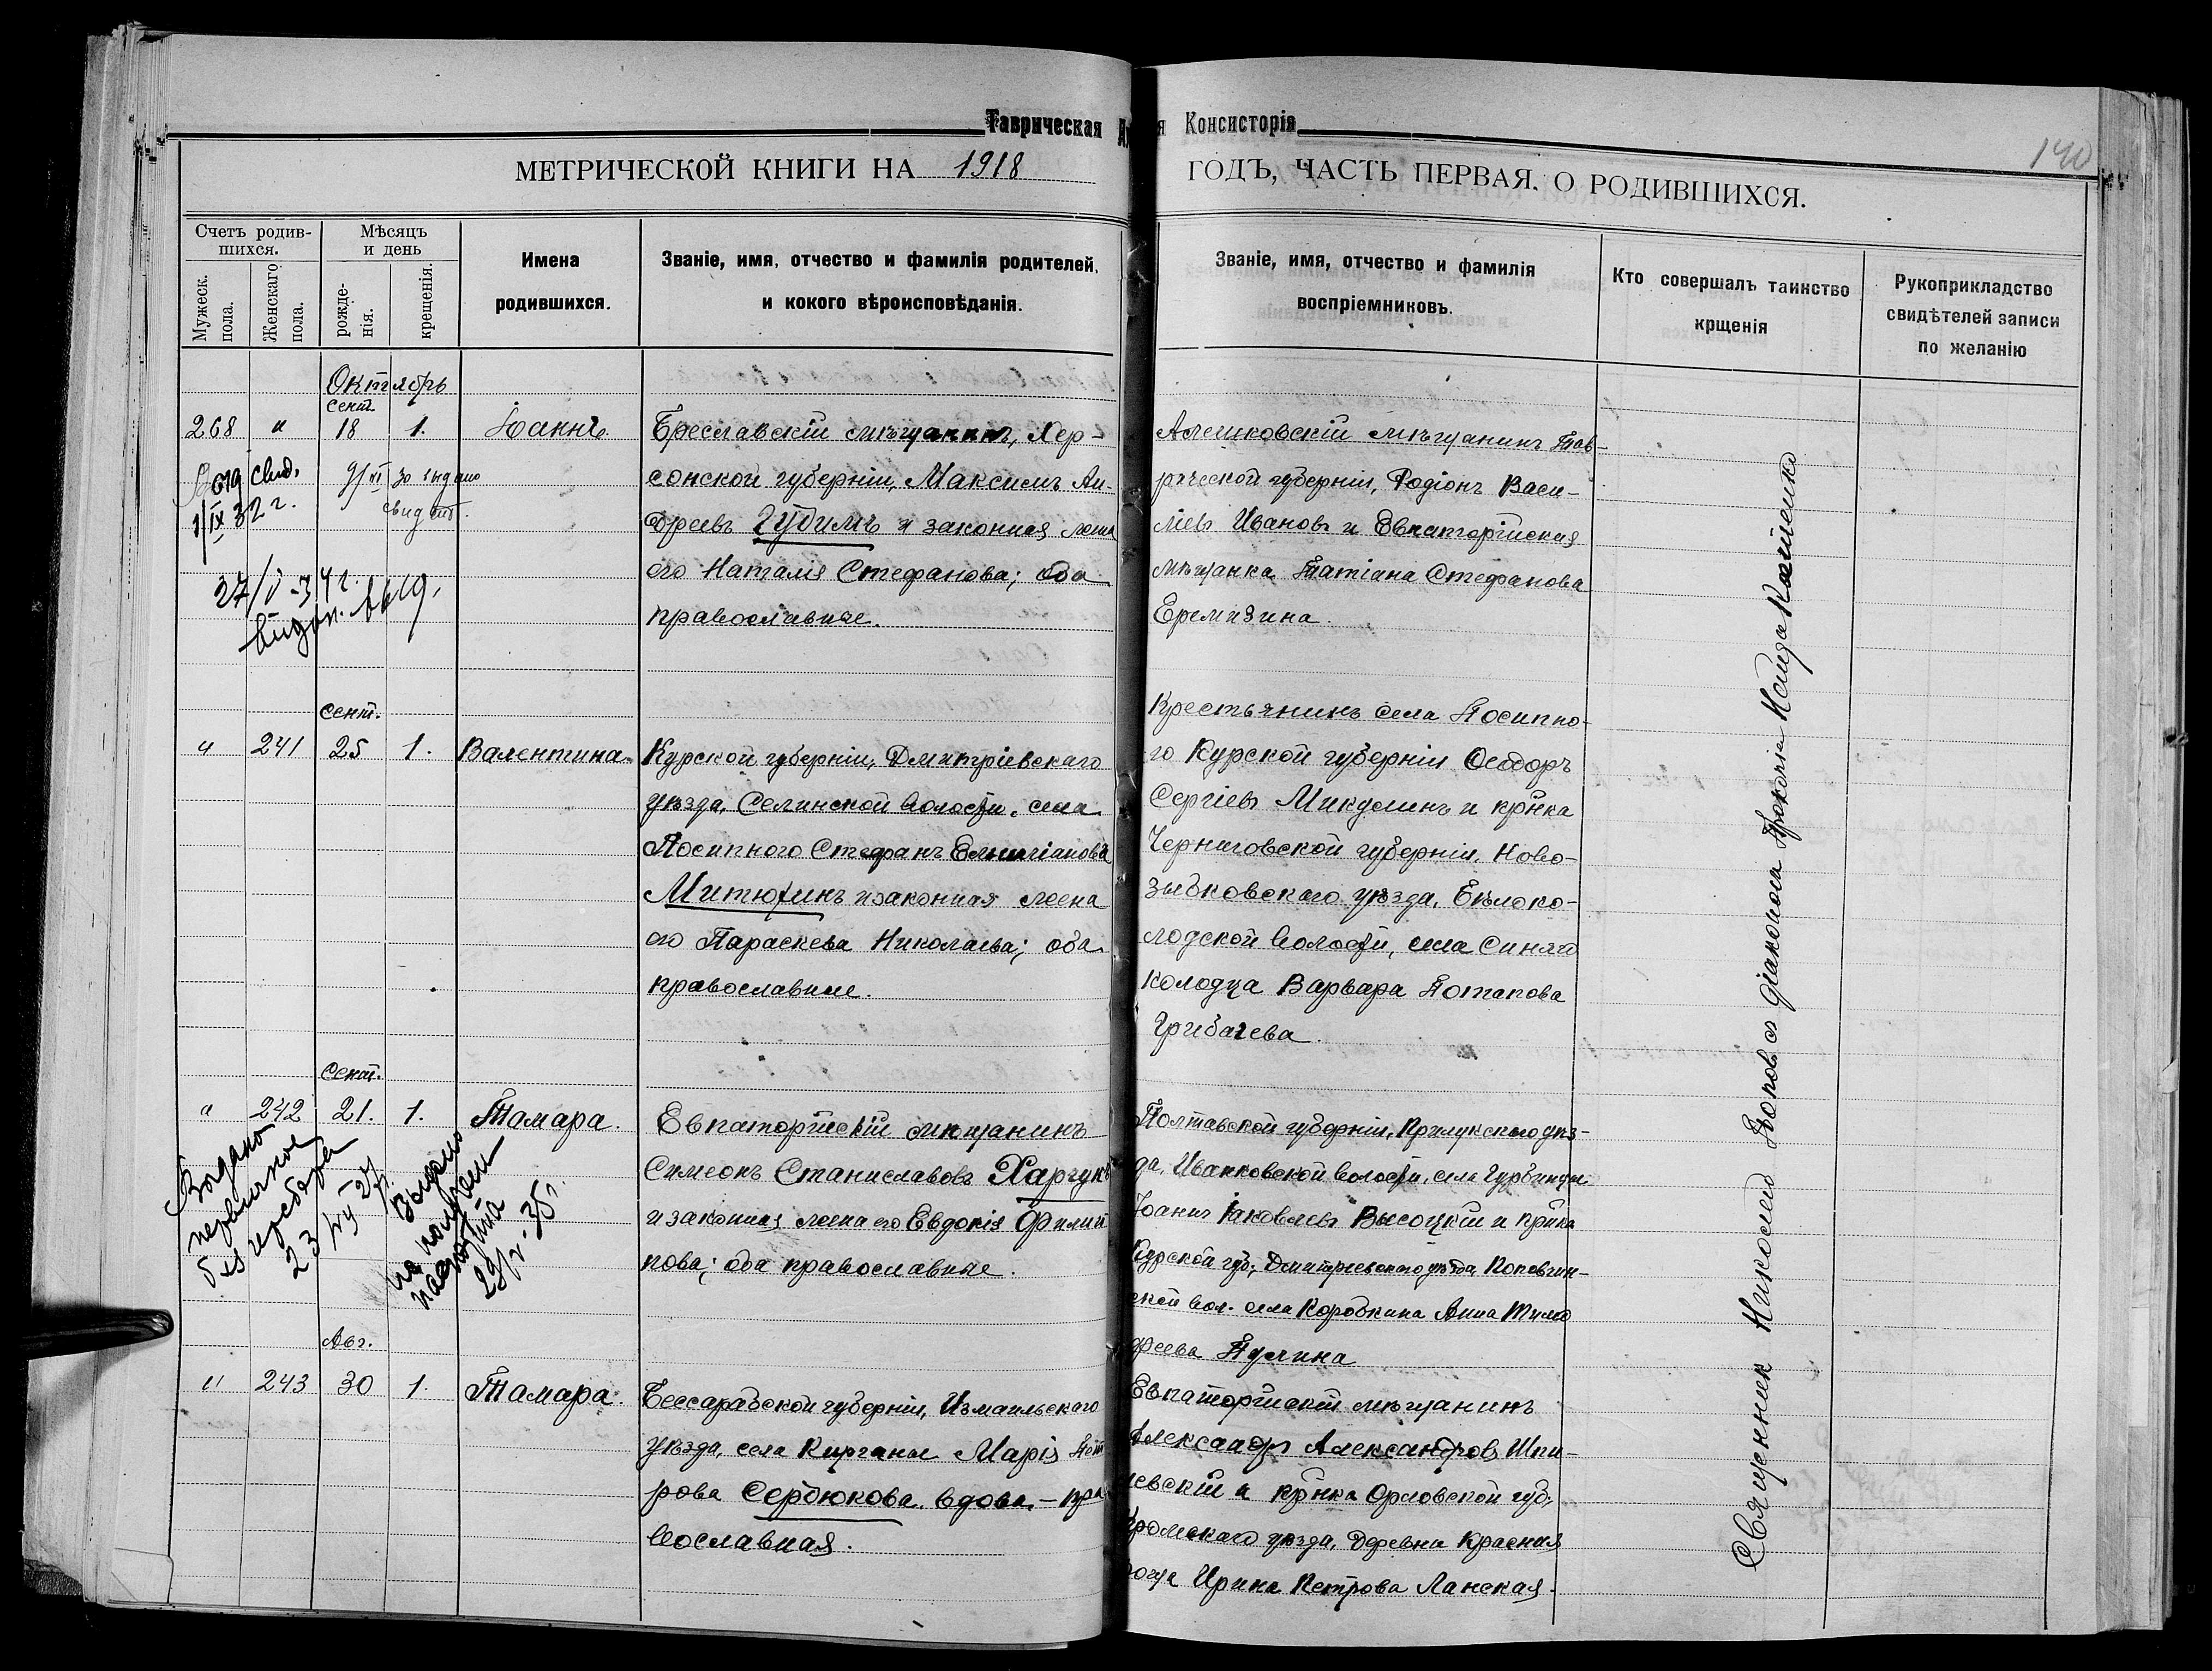 Таврическая
я Консисторія
140
МЕТРИЧЕСКОЙ КНИГИ НА 1918
ГОДЪ, ЧАСТЬ ПЕРВАЯ, О РОДИВШИХСЯ.
Счетъ родив-
шихся.
Мужеск.
пола.
Женскаго
пола.
Мѣсяцъ
и день
рожде-
нія.
крещенія.
Имена
родившихся.
Званіе, имя, отчество и фамилія родителей,
и кокого вѣроисповѣданія.
Званіе, имя, отчество и фамилія
воспріемниковъ.
Кто совершалъ таинство
крщенія
Рукоприкладство
свидѣтелей записи
по желанію
Октябрь
сент.
268 " 18 1. Іоаннъ.
свид.
1/IX 32 г.
9/XI 30 выдано
свид
27/V-34 г.
видан.
Береславскій мѣщанинъ, Хер-
сонской губерніи, Максимъ Ан-
дреевъ Губимъ и законная жена
его Наталія Стефанова; оба
православные.
Алешковскій мѣщанинъ Тав-
рической губерніи, Родіонъ Васи-
ліевъ Ивановъ и Евпаторійская
мѣщанка Татіана Стефанова
Еремизина.
сент.
" 241 25 1. Валентина.
Курской губерніи, Дмитріевскаго
уѣзда, Селинской волости, села
Посипного Стефанъ
Митюхинъ и законная жена
его Параскева Николаева; оба
православные.
Крестьянинъ села Посипно-
го Курской губерніи Ѳеодоръ
Сергіевъ Микулинъ и кр-нка
Черниговской губерніи, Ново-
зыбковскаго уѣзда, Бѣлоко-
лодской волости, села Синяго
колодца Варвара Потапова
Грибачева.
Сент.
" 242 21. 1. Тамара.
Выдано
первичное
23/VI 27
Выдано
на получен
паспорта
35 г.
Евпаторійскій мѣщанинъ
Симеонъ Станиславовъ Харчукъ
и законная жена его Евдокія Филип
пова; оба православные.
Полтавской губерніи, Прилукскаго уѣз-
да, Иванковской волости, села Гурбинцы
Іоаннъ Іаковлевъ Высоцкій и кр-нка
Курской губ., Дмитріевскаго уѣзда,
ской вол. села Коробкина Анна Тимо
феева
Авг.
" 243 30 1. Тамара.
Бессарабской губерніи, Измаильскаго
уѣзда, села Курганы Марія Пет
рова Сердюкова вдова - пра
вославная.
Евпаторійскій мѣщанинъ
Александръ Александровъ Шпи-
левскій и кр-нка Орловской губ.,
Кромскаго уѣзда, деревни Красная
роща Ирина Петрова Ланская.
Священник Николай Попов съ діакономъ